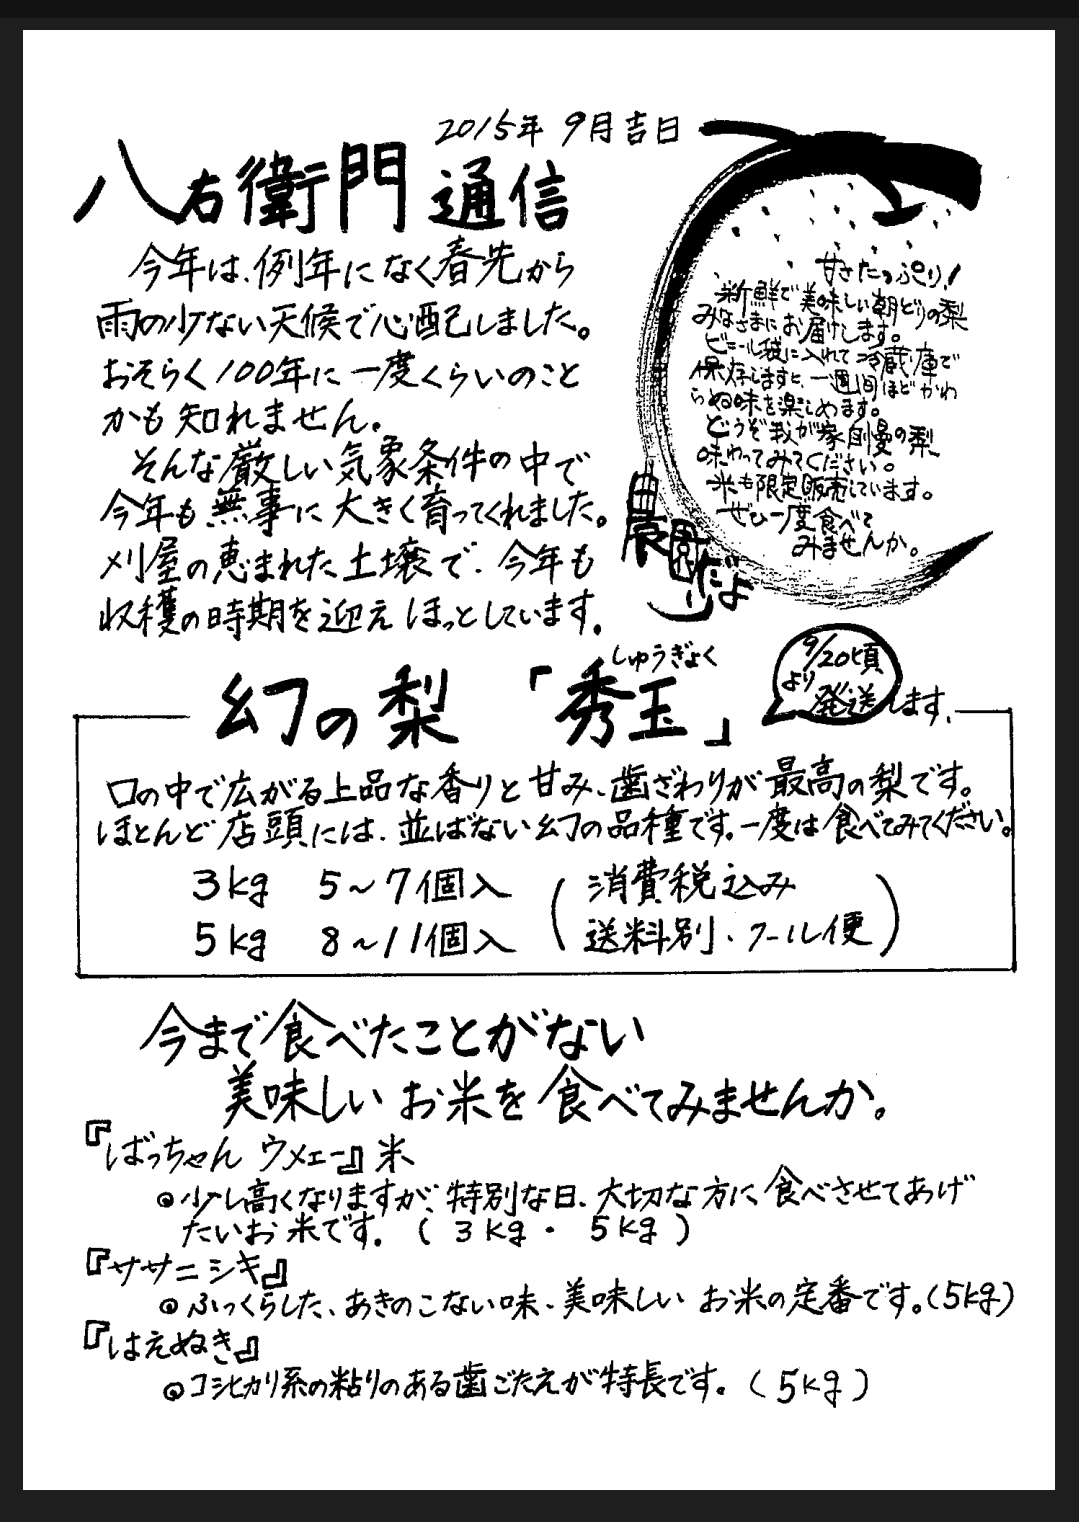 2015年 9月吉日
八右衛門通信
今年は、例年になく春先から
雨の少ない天候で心配しました。
おそらく100年に一度くらいのこと
かも知れません。
そんな厳しい気象条件の中で
今年も無事に大きく育ってくれました。
刈屋の恵まれた土壌で、今年も
収穫の時期を迎えほっとしています。
甘さたっぷり!
新鮮で美味しい朝どりの梨
みなさまにお届けします。
ビニール袋に入れて冷蔵庫で
保存しますと、一週間ほどかわ
らぬ味を楽しめます。
どうぞ我が家自慢の梨
味わってみてください。
米も限定販売しています。
ぜひ一度食べて
みませんか。
農園だよ
り
しゅうぎょく
幻の梨「秀玉」
9/20頃
より
発送します。
口の中で広がる上品な香りと甘み、歯ざわりが最高の梨です。
ほとんど店頭には、並ばない幻の品種です。一度は食べてみてください。
3kg 5~7個入(消費税込み
5kg 8~11個入 送料別、クール便)
今まで食べたことがない
美味しいお米を食べてみませんか。
『ばっちゃんウメェー』米
◎少し高くなりますが、特別な日、大切な方に食べさせてあげ
たいお米です。(3kg・5kg)
『ササニシキ』
◎ふっくらした、あきのこない味、美味しいお米の定番です。(5kg)
『はえぬき』
◎コシヒカリ系の粘りのある歯ごたえが特長です。(5kg)